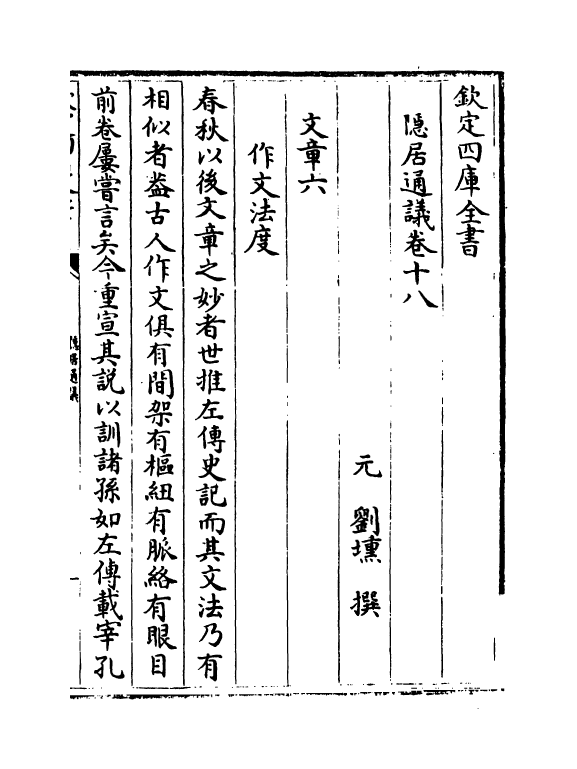 欽定四庫全書
隱居通議卷十八
元 劉壎 撰
文章六
作文法度
春秋以後文章之妙者世推左傳史記而其文法乃有
相似者葢古人作文俱有間架有樞紐有脈絡有眼目
前卷屢嘗言矣今重宣其説以訓諸孫如左傳載宰孔
隱居通議
一